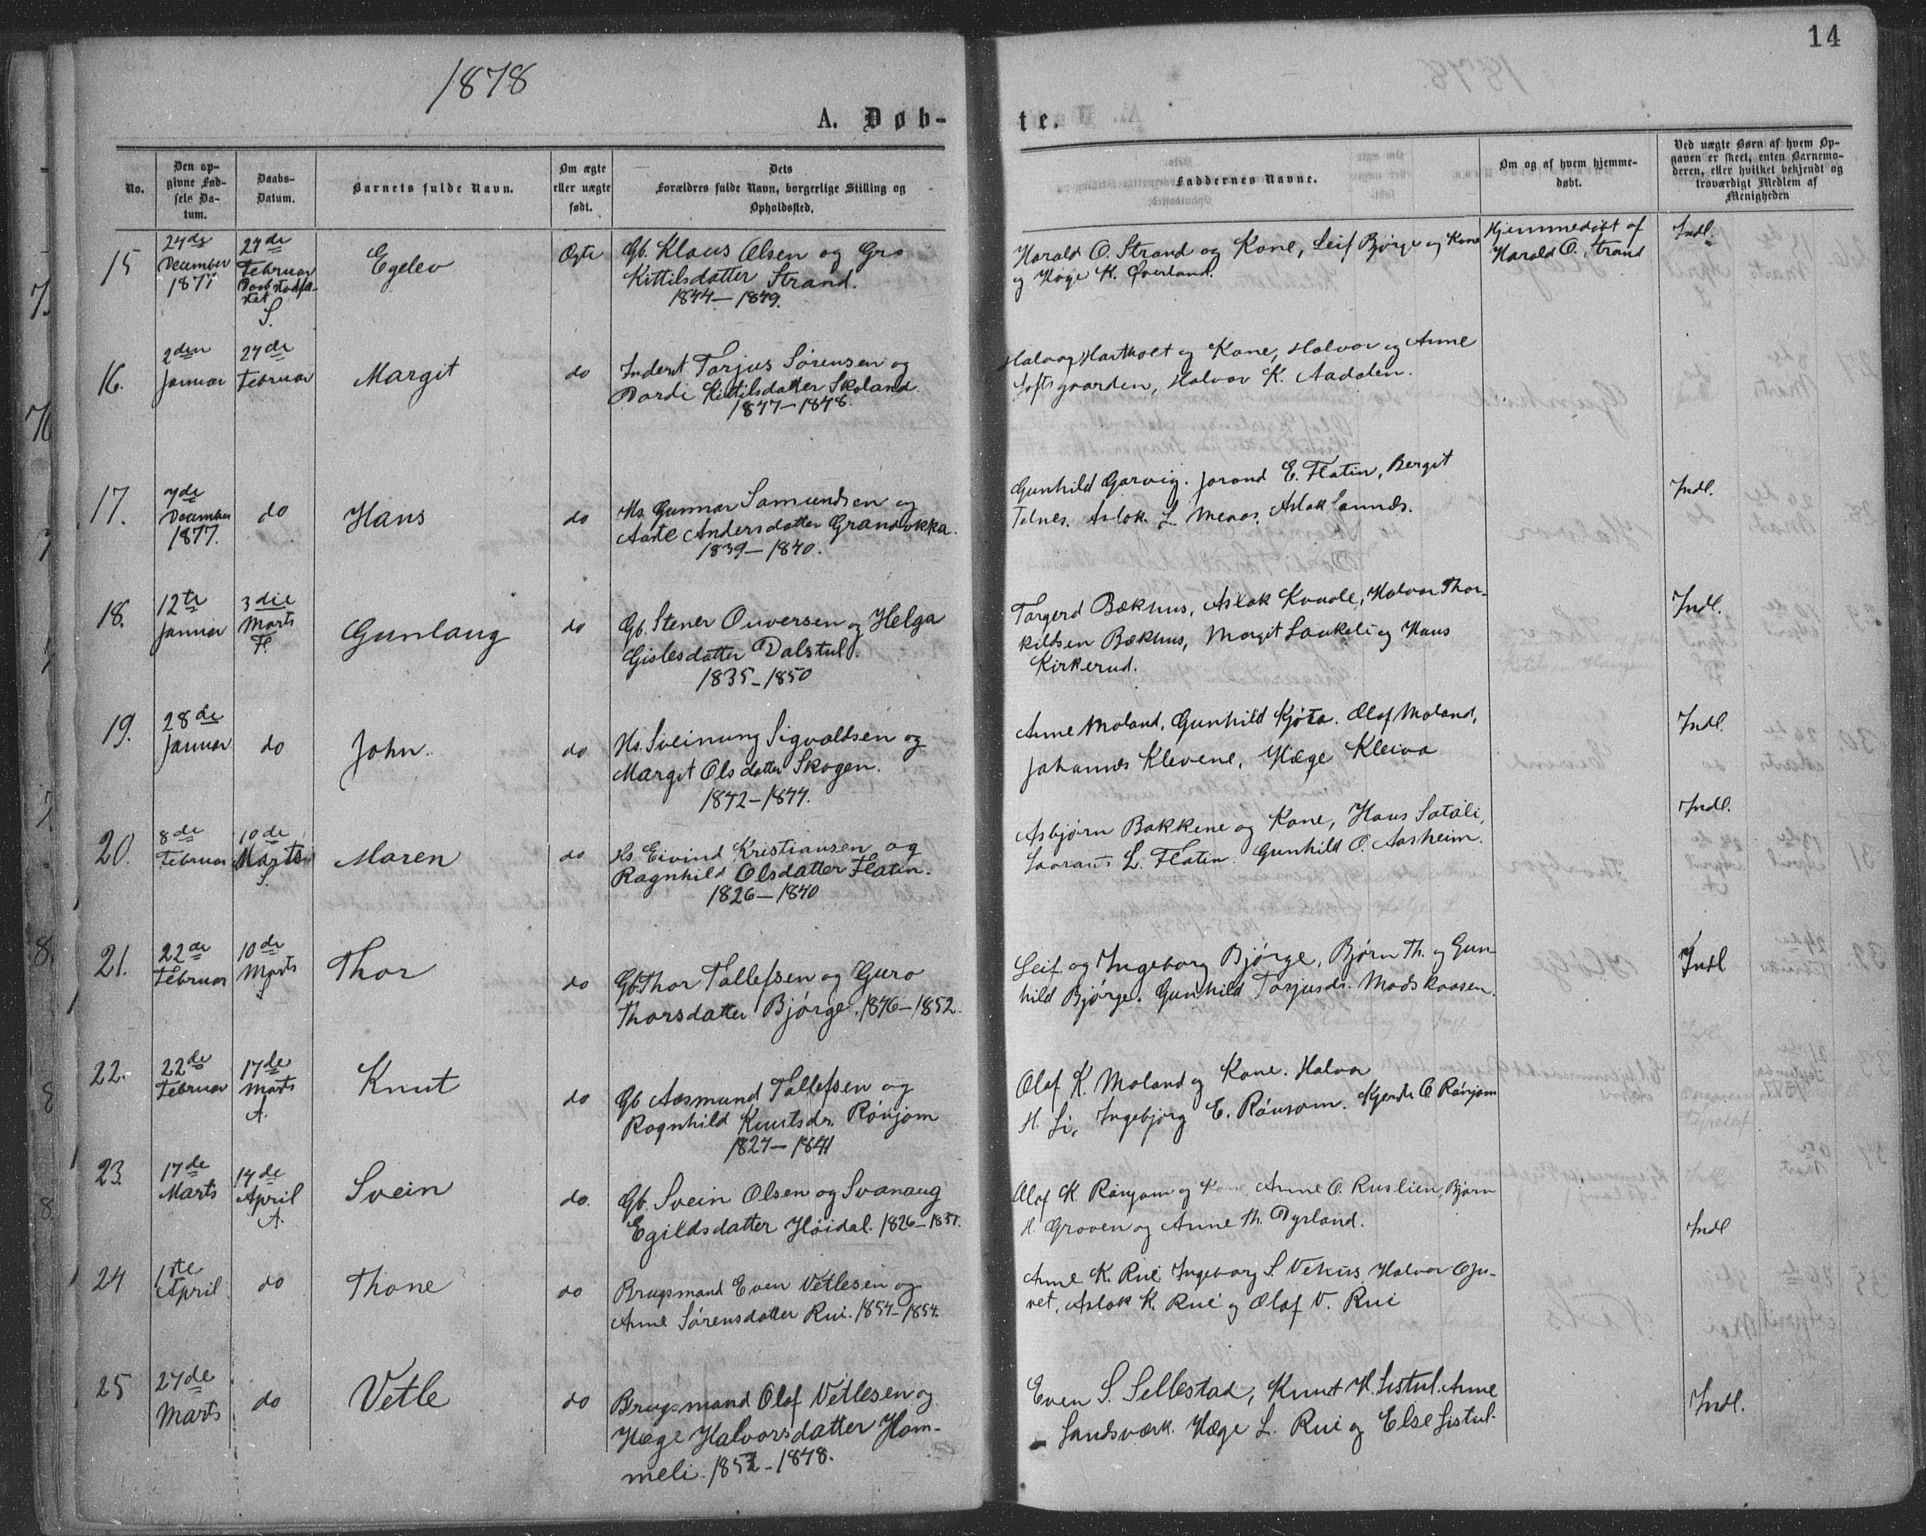 1878
14
A. Døb-
te.
No.
Den op-
givne Fød-
sels Da-
tum.
Daabs-
Datum.
Barnets fulde Navn.
Om ægte
eller uægte
født.
Dets
Forældres fulde Navn, borgerlige Stilling og
Opholdssted.
Faddernes Navne.
Om og af hvem hjemme-
døbt.
Ved uægte Børn af hvem Op-
gaven er skeet, enten Barnemo-
deren, eller hvilket bekjendt og
troværdigt Medlem af
Menigheden
15
24de
December
1877
24de
Februar
S.
Egelev
Ægte
Gb. Klaus Olsen og Gro
Kittilsdatter Strand.
1844–1849.
Harald O. Strand og Kone, Leif Bjørge og Kone
og Hæge K. Øverland.
Hjemmedøbt af
Harald O. Strand
Indl.
16.
2den
Januar
24de
Februar
Margit
do
Inderst Torjus Sørensen og
Dordi Kittilsdatter Skoland.
1847–1848.
Halvor Hartholt og Kone, Halvor og Anne
Loftsgaarden, Halvor K. Aadalen.
17.
7de
December
1877.
do
Hans
do
Hs. Gunnar Samundsen og
Aase Andersdatter Grandokka.
1839–1840.
Gunhild Garvig. Jorond E. Flatin, Bergit
Telnes, Aslak L. Meaas. Aslak Sannes.
Indl.
18.
12te
Januar
3die
Marts
F.
Gunlaug
do
Gb. Stener Ouversen og Helga
Gislesdatter Dalstul.
1835–1850
Targerd Bækhus, Aslak Kvaale, Halvor Thor-
kildsen Bækhus, Margit Laukeli og Hans
Kirkerud.
Indl.
19.
28de
Januar
do
John.
do
Hs. Sveinung Sigvaldsen og
Margit Olsdatter Skogen.
1842–1844.
Anne Moland, Gunhild Kjøta. Olaf Moland,
Johannes Klevene, Hæge Kleiva
Indl.
20.
8de
Februar
10de
Marts
S.
Maren
do
Hs. Eivind Kristiansen og
Ragnhild Olsdatter Flatin.
1826–1840
Asbjørn Bakkene og Kone, Hans Latåli,
Laurants L. Flatin. Gunhild O. Aasheim.
Indl.
21.
22de
Februar
10de
Marts
S
Thor
do
Gb. Thor Tallefsen og Guro
Thorsdatter Bjørge. 1846–1852.
Leif og Ingeborg Bjørge, Bjørn Th. og Gun-
hild Bjørge. Gunhild Torjusdr. Modskaasen.
Indl
22.
22de
Februar
17de
Marts
A.
Knut
do
Gb Aasmund Tallefsen og
Ragnhild Knutsdr. Rönjom
1827–1841
Olaf K. Moland og Kone. Halvor
H. Li, Ingebjørg E. Rönjom. Gjende O. Rönjom
23.
17de
Marts
14de
April
A.
Svein
do.
Gb. Svein Olsen og Svanaug
Egildsdatter Høidal. 1826–1837.
Olaf K. Rönjom og Kone, Anne O. Ruslien, Bjørn
H. Groven og Anne Th. Dyrland.
Indl
24
1ste
April.
do
Thone
do
Brugsmand Even Vetlesen og
Anne Sørensdatter Rui. 1854–1854.
Anne K. Rui, Ingeborg S. Vehus, Halvor Gju-
vet, Aslak K. Rui og Olaf V. Rui
25
24de
Marts
do
Vetle
do
Brugsmand Olaf Vetlesen og
Hæge Halvorsdatter Hom-
meli. 1852–1848.
Even S. Sellestad, Knut H. Listul. Anne
Landsværk. Hæge L. Rui og Else Listul.
Indl.